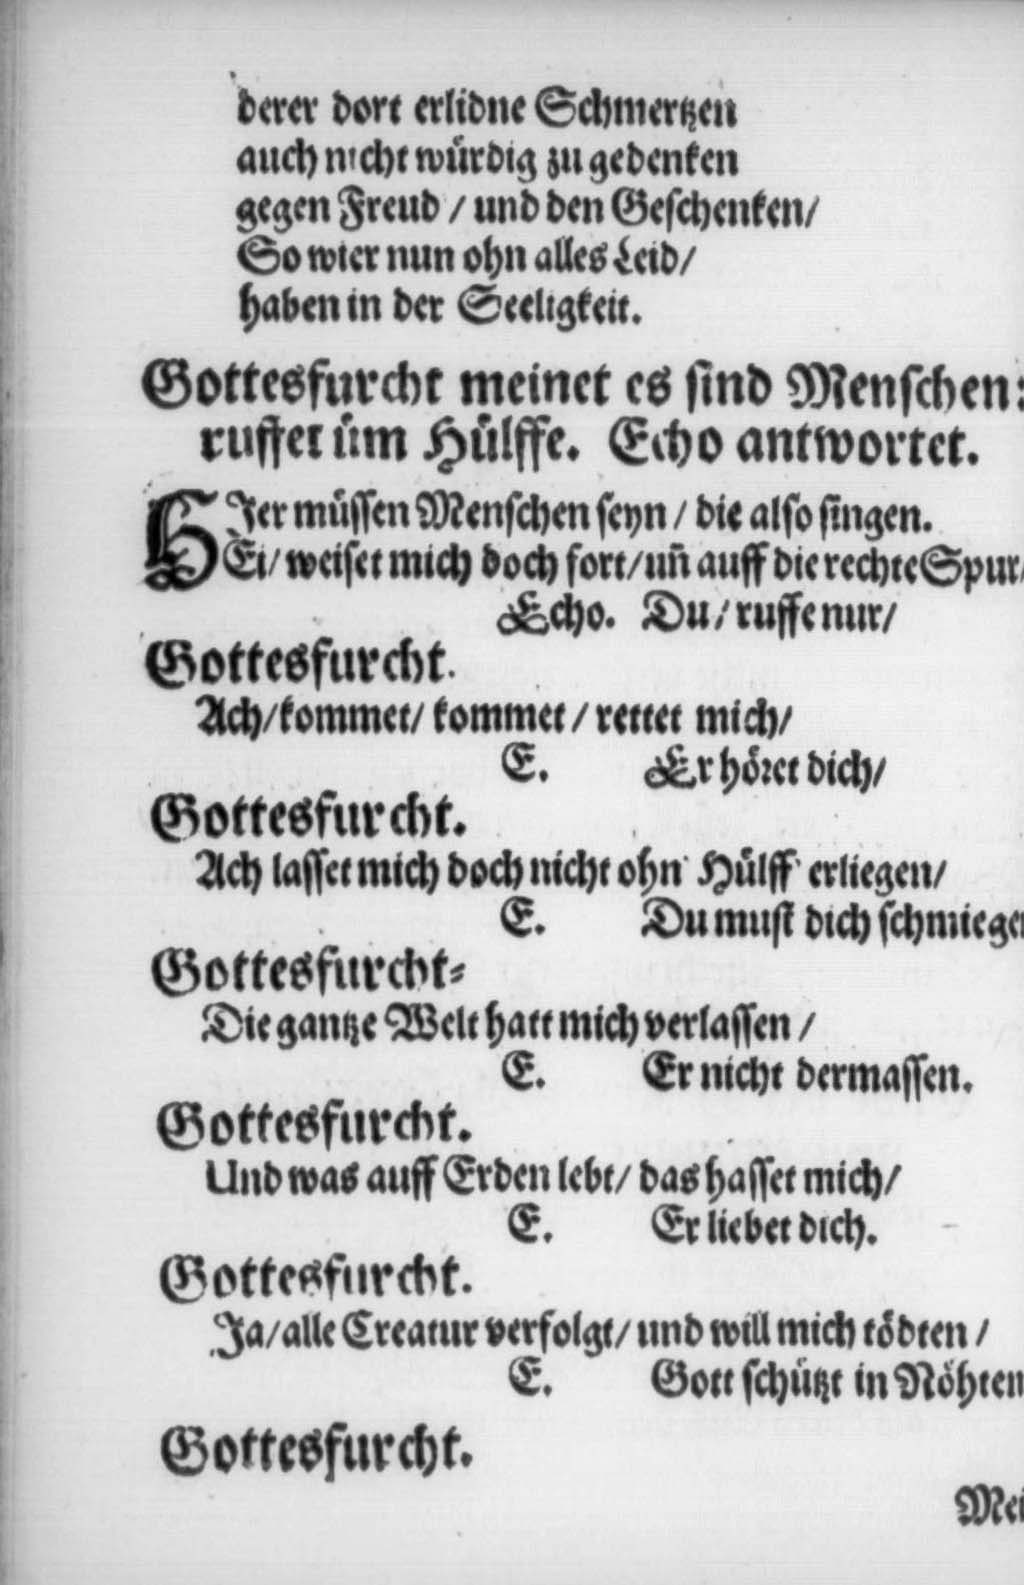 derer dort erlidne Schmertzen
auch nicht würdig zu gedenken
gegen Freud / und den Geschenken/
So wier nun ohn alles Leid/
haben in der Seeligkeit.
Gottesfurcht meinet es sind Menschen:
ruffet üm Hülffe. Echo antwortet.
HIer müssen Menschen seyn / die also singen.
Ei/ weiset mich doch fort/ uñ auff die rechte Spur/
Echo. Du / ruffe nur/
Gottesfurcht.
Ach/ kommet/ kommet / rettet mich/
E. Er höret dich/
Gottesfurcht.
Ach lasset mich doch nicht ohn' Hülff' erliegen/
E. Du must dich schmiegen
Gottesfurcht=
Die gantze Welt hatt mich verlassen /
E. Er nicht dermassen.
Gottesfurcht.
Und was auff Erden lebt/ das hasset mich/
E. Er liebet dich.
Gottesfurcht.
Ja/ alle Creatur verfolgt/ und will mich tödten /
E. Gott schützt in Nöhten
Gottesfurcht.
Mei